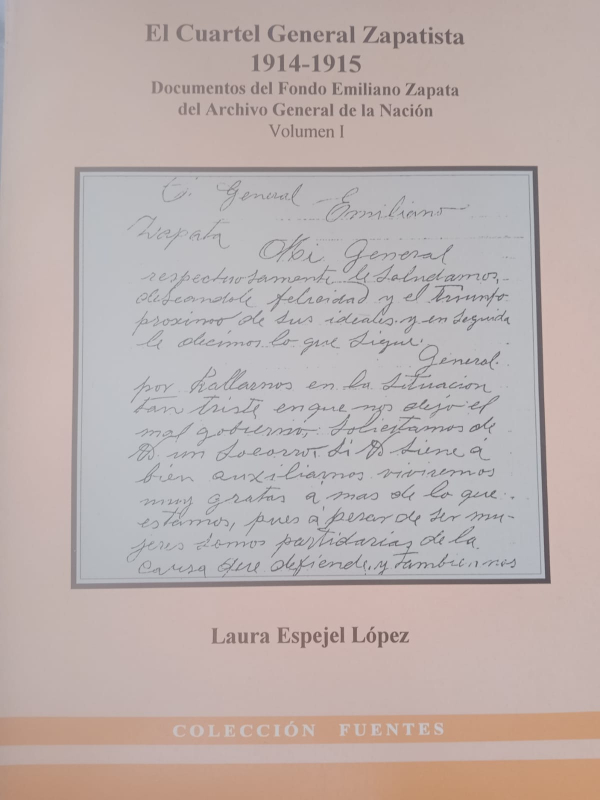 El Cuartel General Zapatista
1914-1915
Documentos del Fondo Emiliano Zapata
del Archivo General de la Nación
Volumen I
General Emiliano
Zapata
Mi General
respectuosamente le saludamos,
deseandole felicidad y el triunfo
proximo de sus ideales y en seguida
le decimos lo que sigue.
General
por hallarnos en la situacion
tan triste en que nos dejó el
mal gobierno, solicitamos de
Ud un socorro, si Ud tiene á
bien auxiliarnos viviremos
muy gratas a mas de lo que
estamos, pues á pesar de ser mu-
jeres somos partidarias de la
causa que defiende, y tambien nos
Laura Espejel López
COLECCIÓN FUENTES